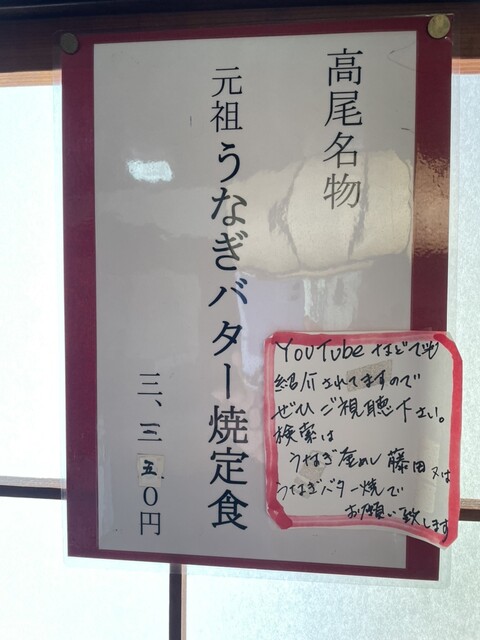 高尾名物
元祖 うなぎバター焼定食
三、三五0円
YouTubeなどでも
紹介されてますので
ぜひご視聴下さい。
検索は
うなぎ釜めし 藤田 又は
うなぎバター焼で
お願い致します